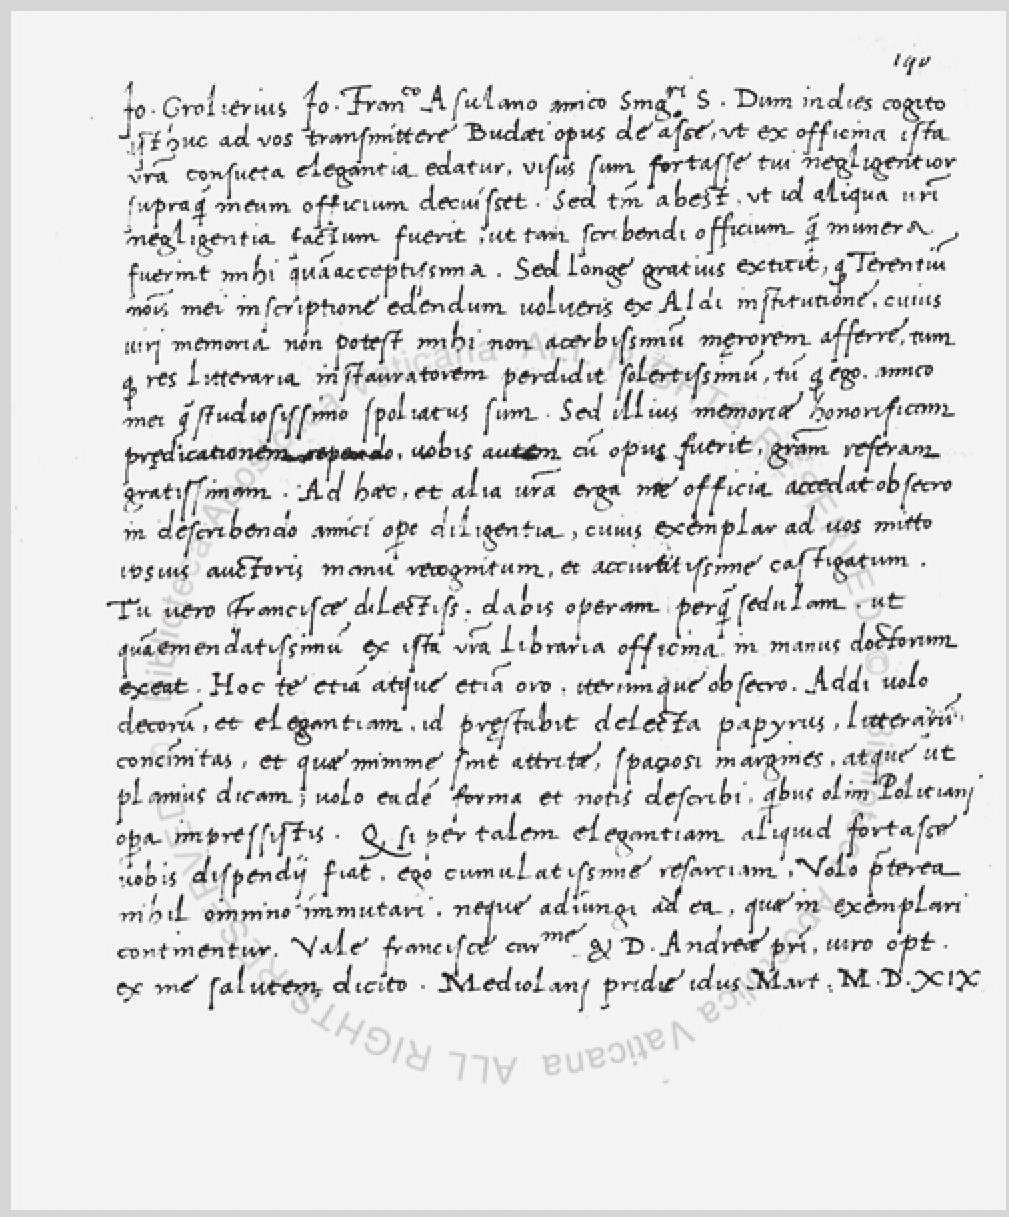 190
Jo. Grolierius Jo. Franco Asulano amico Singri S. Dum indies cogito
isthuc ad vos transmittere Budæi opus de asse, vt ex officina ista
vrā consueta elegantia edatur, visus sum fortasse tui negligentior
supraq̃ meum officium decuisset. Sed tm̄ abest, vt id aliqua uri
negligentia factum fuerit, ut tam scribendi officium q̃ munera
fuerint mihi quāacceptissima. Sed longe gratius extitit, q Terentiū
nōis mei inscriptione edendum uolueris ex Aldi institutione, cuius
uirj memoria non potest mihi non acerbissimū męrorem afferre, tum
q res litteraria instauratorem perdidit solertissimū, tū q ego amico
mei q̃ studiosissimo spoliatus sum. Sed illius memoriæ honorificam
prędicationem, uobis autem cū opus fuerit, grām referam
gratissimam. Ad hæc, et alia urā erga me officia accedat obsecro
in describendo amici ope diligentia, cuius exemplar ad uos mitto
ipsius auctoris manu recognitum, et accuratissime castigatum.
Tu uero Francisce dilectiss. dabis operam perq̃ sedulam, ut
quāemendatissimū ex ista vrā libraria officina in manus doctorum
exeat. Hoc te etiā atque etiā oro, iterumque obsecro. Addi uolo
decorū, et elegantiam, id pręstabit delecta papyrus, litterarū
concinnitas, et quæ minime sint attritæ, spaciosi margines, atque ut
planius dicam; uolo eadē forma et notis describi, qbus olim Politianj
opa impressistis. Q si per talem elegantiam aliquid fortasse
uobis dispendij fiat, ego cumulatissime resarciam. Volo pterea
nihil omnino immutari, neque adiungi ad ea, quæ in exemplari
continentur. Vale francisce carme & D. Andreæ pri, uiro opt.
ex me salutem dicito. Mediolanj pridie idus Mart. M.D.XIX
© Biblioteca Apostolica Vaticana ALL RIGHTS RESERVED © Biblioteca Apostolica Vaticana ALL RIGHTS RESERVED